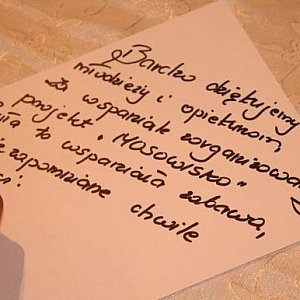 Bardzo dziękujemy
młodzieży i opiekunom
za wspaniale zorganizowany
projekt "MOSOWISKO"
to wspaniała zabawa,
niezapomniane chwile